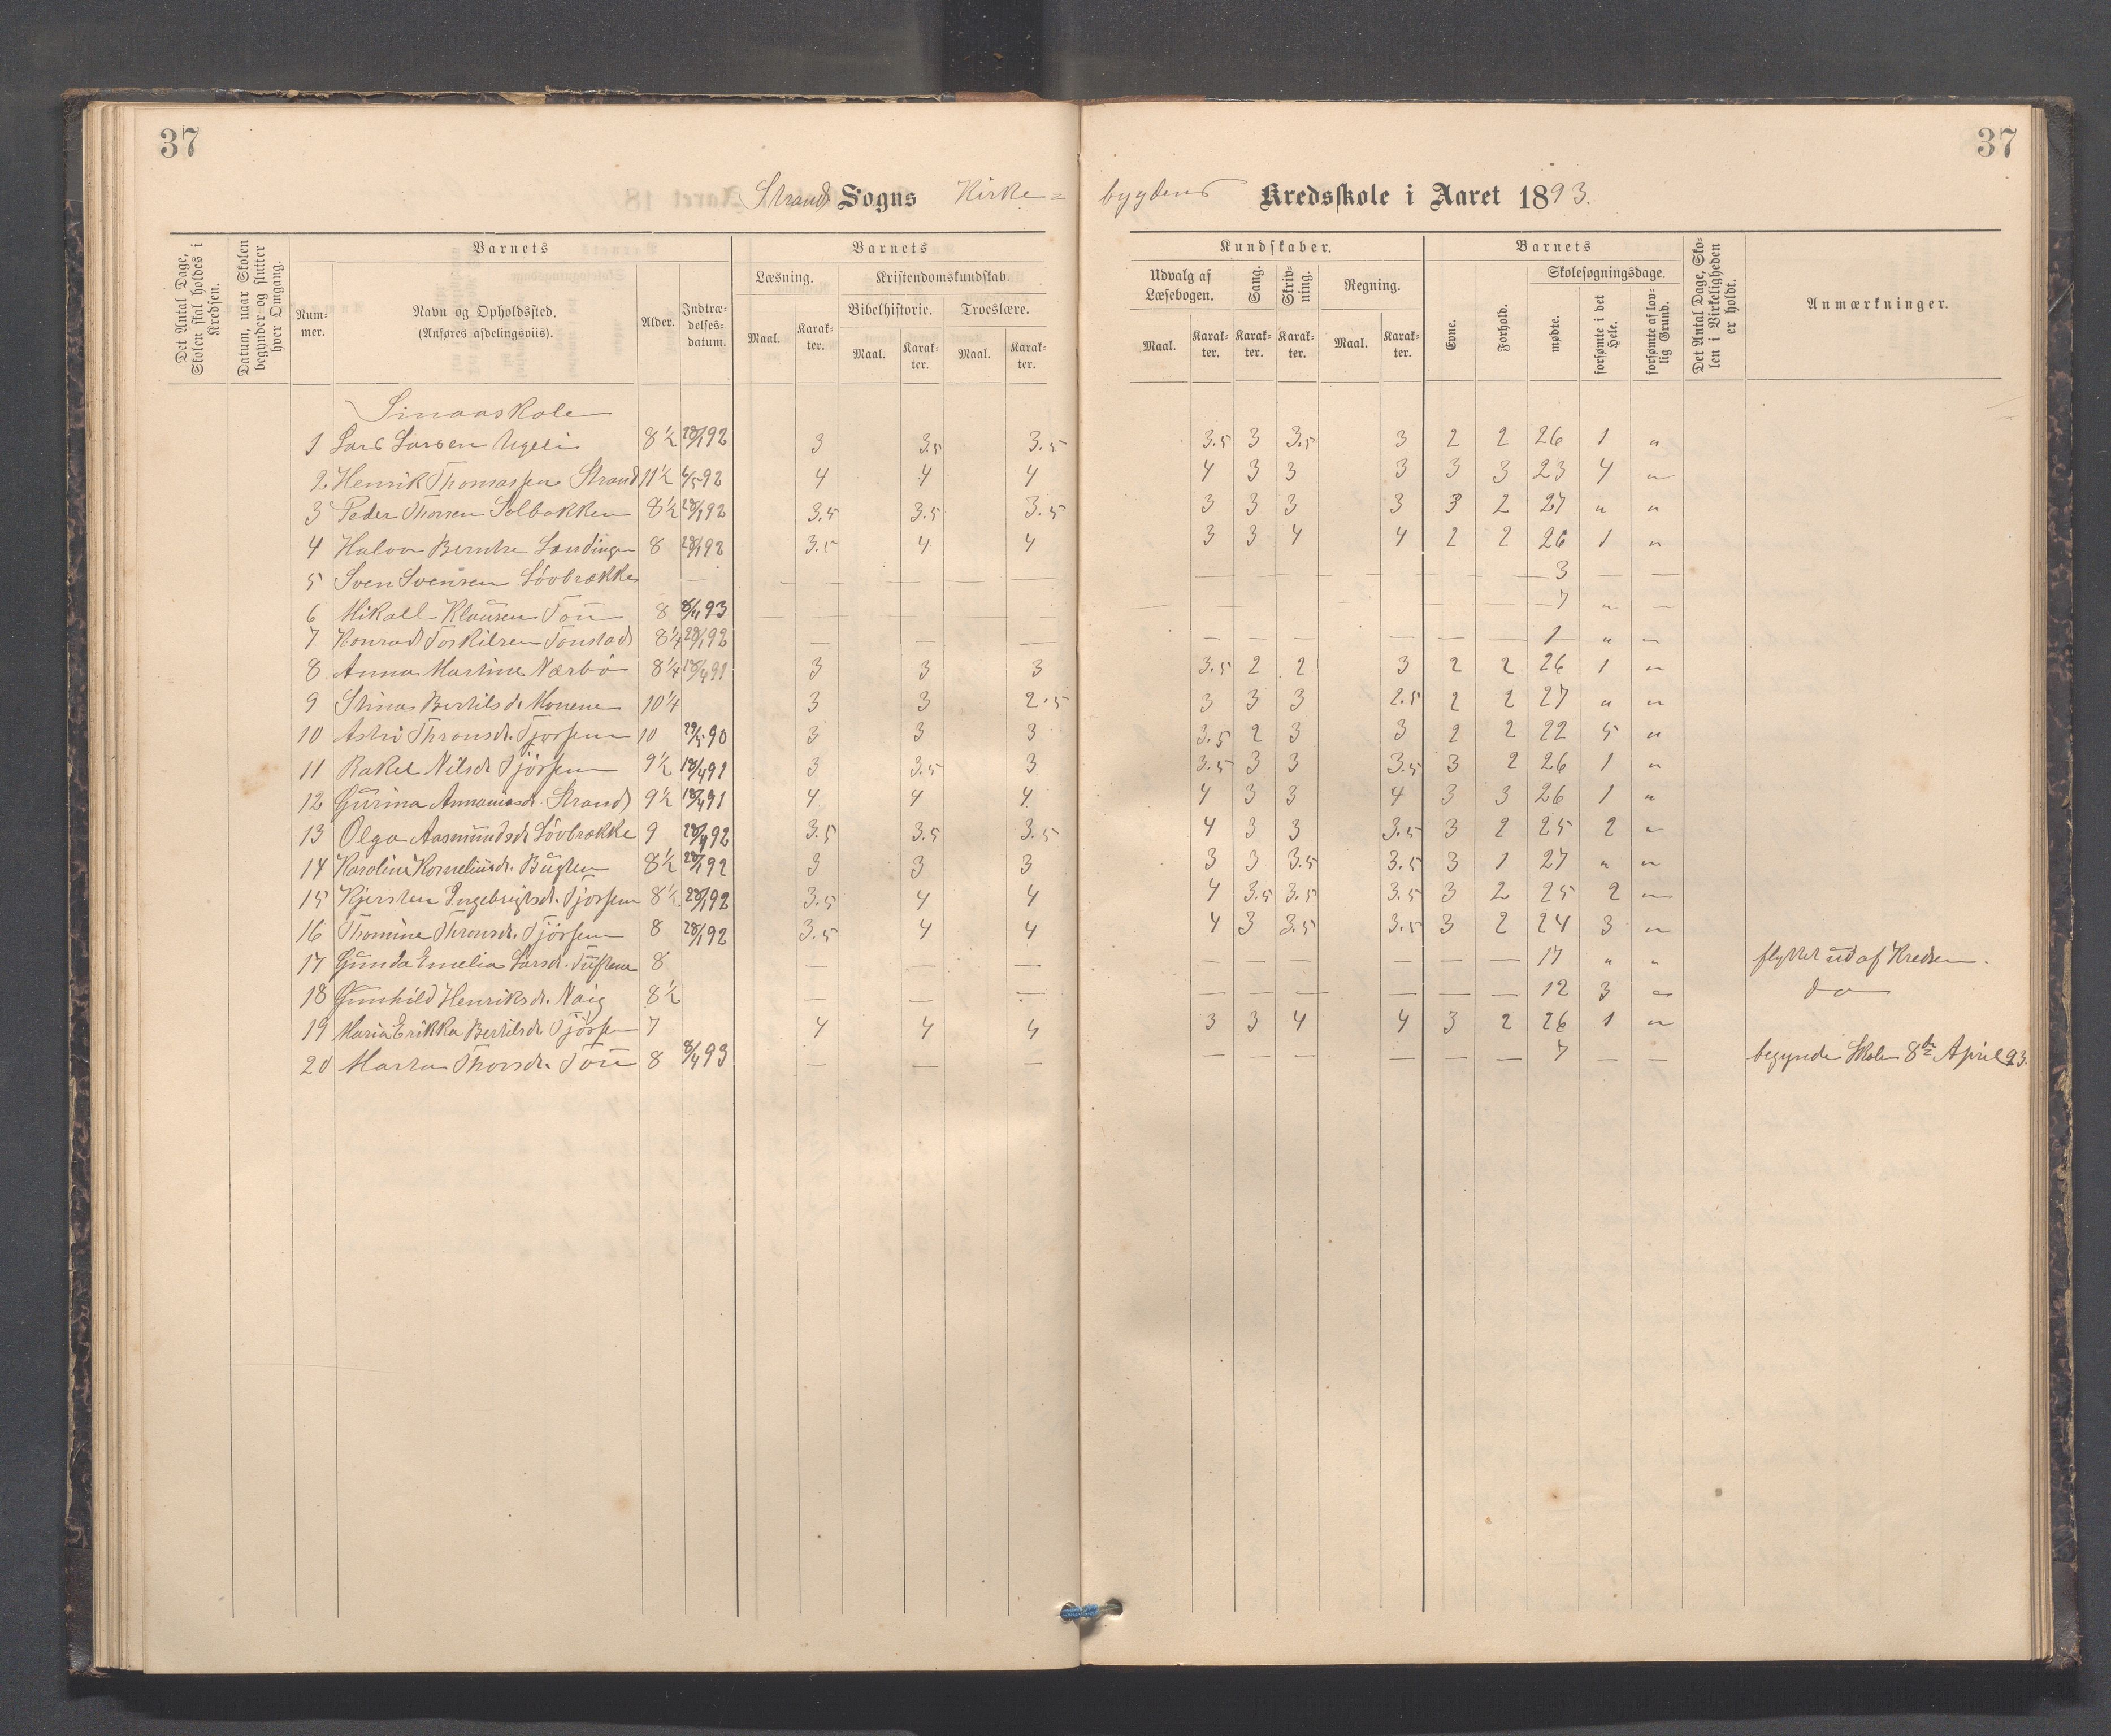 37
37
Strands Sogns Kirke=
bygdens Kredsskole i Aaret 1893.
Det Antal Dage, Skolen skal holdes i Kredsen.
Datum, naar Skolen begynder og slutter hver Omgang.
Barnets
Nummer.
Navn og Opholdssted.
(Anføres afdelingsviis).
Alder.
Indtrædelsesdatum.
Barnets
Læsning.
Maal.
Karakter.
Kristendomskundskab.
Bibelhistorie.
Maal.
Karakter.
Troeslære.
Maal.
Karakter.
Kundskaber.
Udvalg af Læsebogen.
Maal.
Karakter.
Sang.
Karakter.
Skrivning.
Karakter.
Regning.
Maal.
Karakter.
Barnets
Evne.
Forhold.
Skolesøgningsdage.
mødte.
forsømte i det Hele.
forsømte af lovlig Grund.
Det Antal Dage, Skolen i Virkeligheden er holdt.
Anmærkninger.
Smaaskole
1 Lars Larsen 8½ 28/1 92 3 3.5 3.5 3.5 3 3.5 3 2 2 26 1 "
2 Henrik Thomassen Strand 11½ 6/5 92 4 4 4 4 3 3 3 3 3 23 4 "
3 Peder Thorsen Solbakken 8½ 28/1 92 3.5 3.5 3.5 3 3 3 3 3 2 27 " "
4 Halvor Berntsen 8 28/1 92 3.5 4 4 3 3 4 4 2 2 26 1 "
5 Sven Svensen Lövbrække — — — — — — — 3 — —
6 Mikall Klausen Tou 8 8/4 93 — — — — — — — 7 " —
7 Konrad Torkilsen Tonstad 8¼ 28/1 92 — — — — — — — — — 1 " "
8 Anna Martine Nærbö 8¼ 18/4 91 3 3 3 3.5 2 2 3 2 2 26 1 "
9 Stina Bertilsd. Monene 10¼ 3 3 2.5 3 3 3 2.5 2 2 27 " "
10 Astri Thronsd. Tjøssem 10 29/5 90 3 3 3 3.5 2 3 3 2 2 22 5 "
11 Rakel Nilsd. Tjössem 9½ 18/4 91 3 3.5 3 3.5 3 3 3.5 3 2 26 1 "
12 Gurina Strand 9½ 18/4 91 4 4 4 4 3 3 4 3 3 26 1 "
13 Olga Aasmundsd. Lövbrække 9 28/4 92 3.5 3.5 3.5 4 3 3 3.5 3 2 25 2 "
14 Karoline Korneliusd. 8½ 28/1 92 3 3 3 3 3 3.5 3.5 3 1 27 " "
15 Kjersten Ingebrigtsd. Tjössem 8½ 28/1 92 3.5 4 4 4 3.5 3.5 3.5 3 2 25 2 "
16 Thomine Thronsd. Tjössem 8 28/1 92 3.5 4 4 4 3 3.5 3.5 3 2 24 3 "
17 Gunda Emelia Larsd. 8 — — — — — — — — — 17 " " flyttet ud af Kredsen.
18 Gunhild Henriksd. Naig 8½ — — — — — — — — — 12 3 " do
19 Maria Erikka Bertilsd. Tjössem 7 4 4 4 3 3 4 4 3 2 26 1 "
20 Marta Thorsd. Tou 8 8/4 93 — — — — — — — — — 7 — — begynde Skolen 8de April 93.